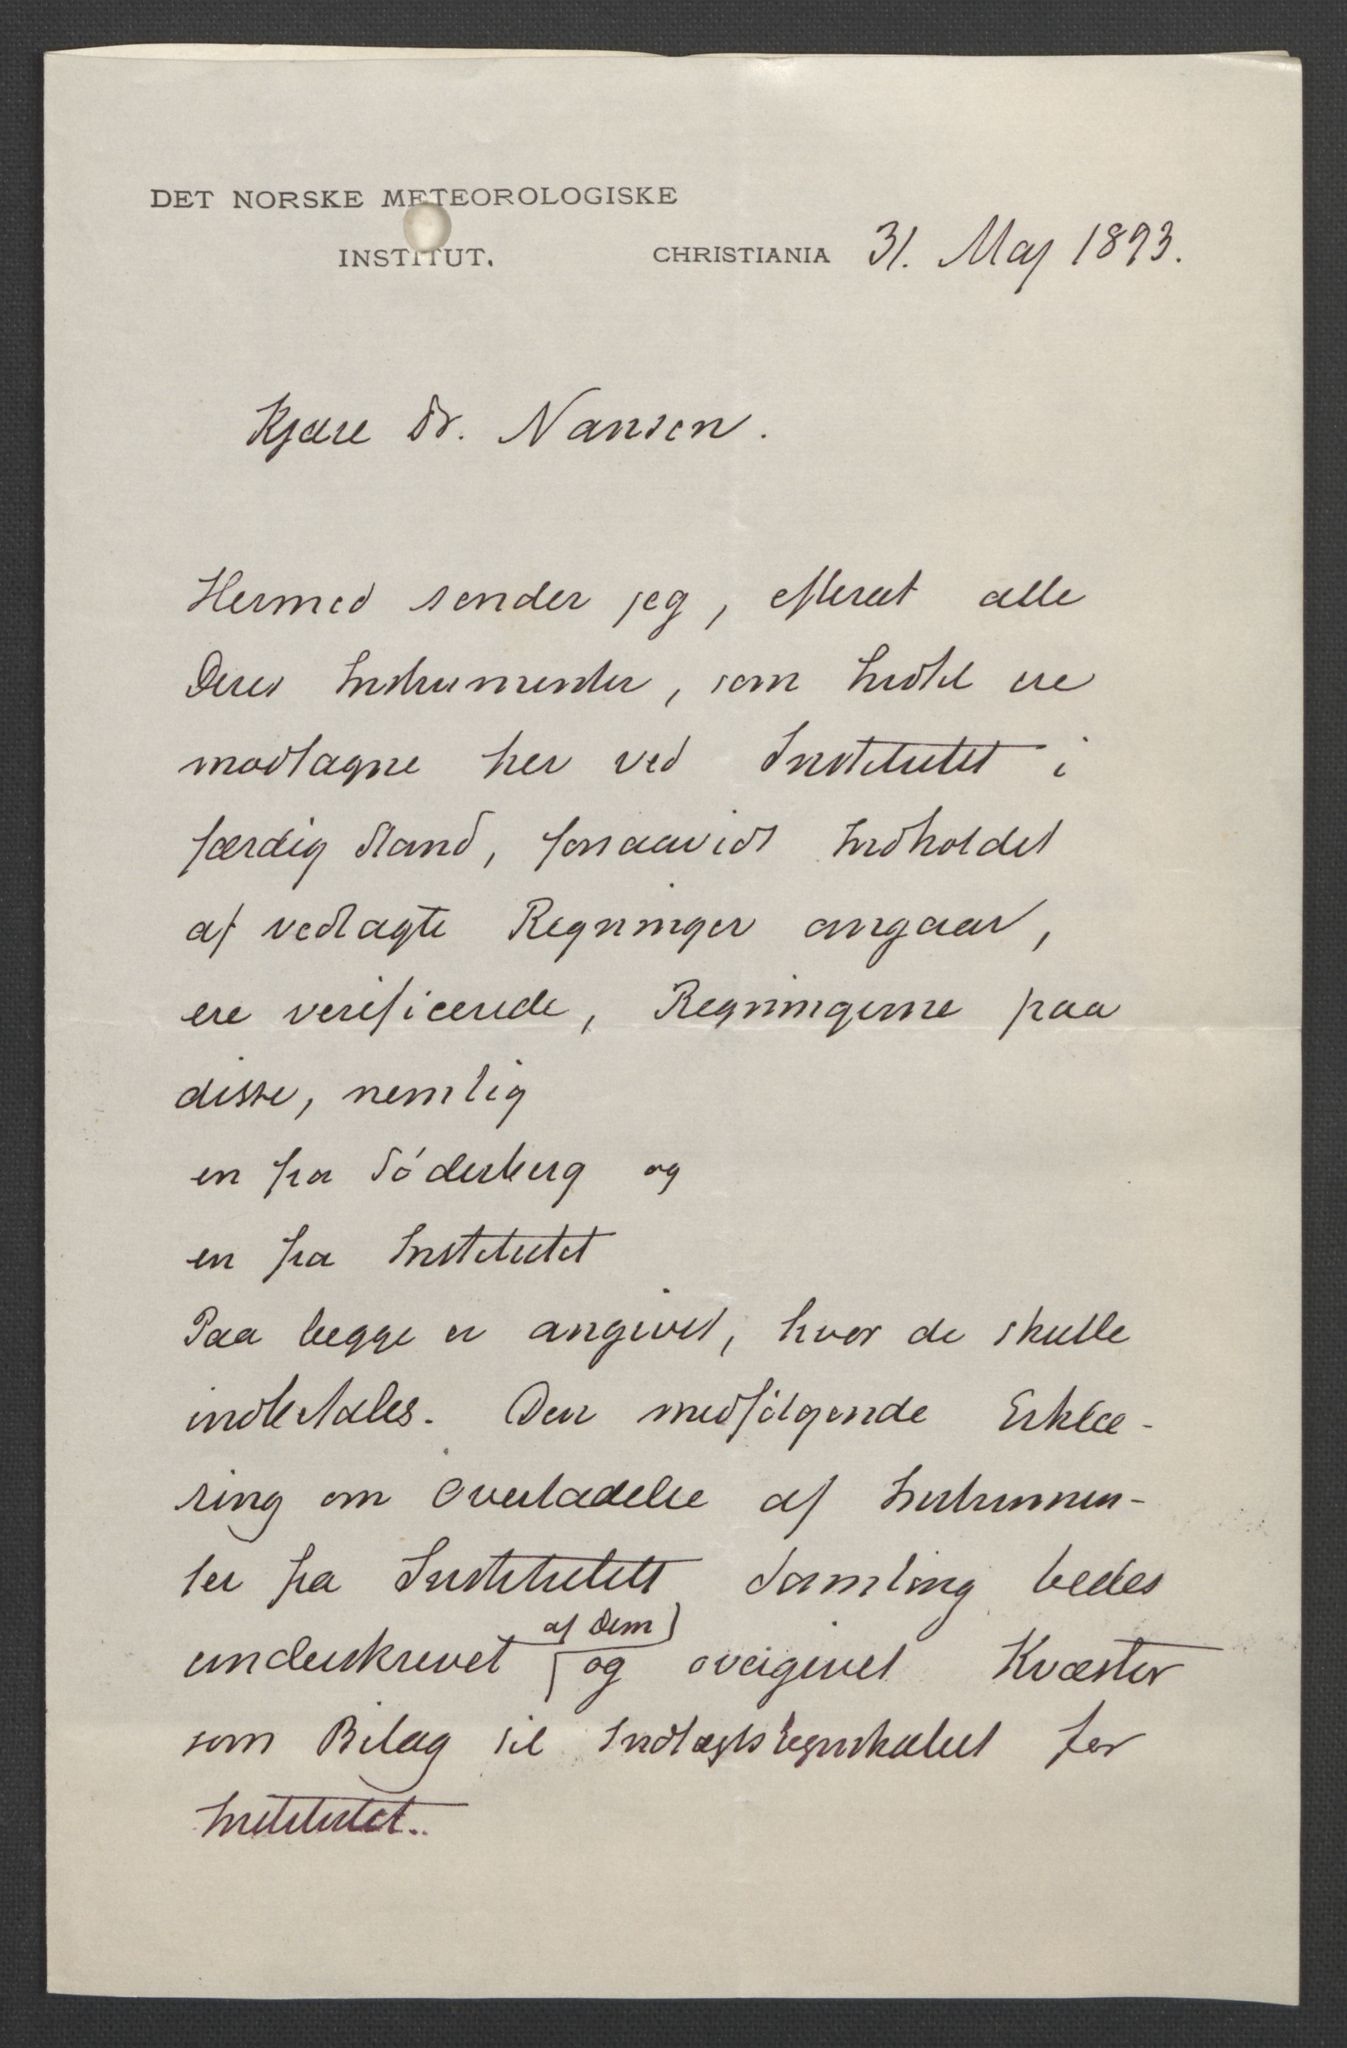 DET NORSKE METEOROLOGISKE
INSTITUT. CHRISTIANIA 31. Maj 1893.
Kjære Dr. Nansen.
Hermed sender jeg, efterat alle
Deres Instrumenter, som hidtil ere
modtagne her ved Institutet i
færdig Stand, forsaavidt Indholdet
af vedlagte Regninger angaar,
ere verificerede, Regningerne paa
disse, nemlig
en fra Söderberg og
en fra Institutet
Paa begge er angivet, hvor de skulle
indbetales. Den medfølgende Erklæ-
ring om Overladelse af Instrumen-
ter fra Institutets Samling bedes
underskrevet af Dem og overgivet Kvæstor
som Bilag til Indtægtsregnskabet for
Institutet.